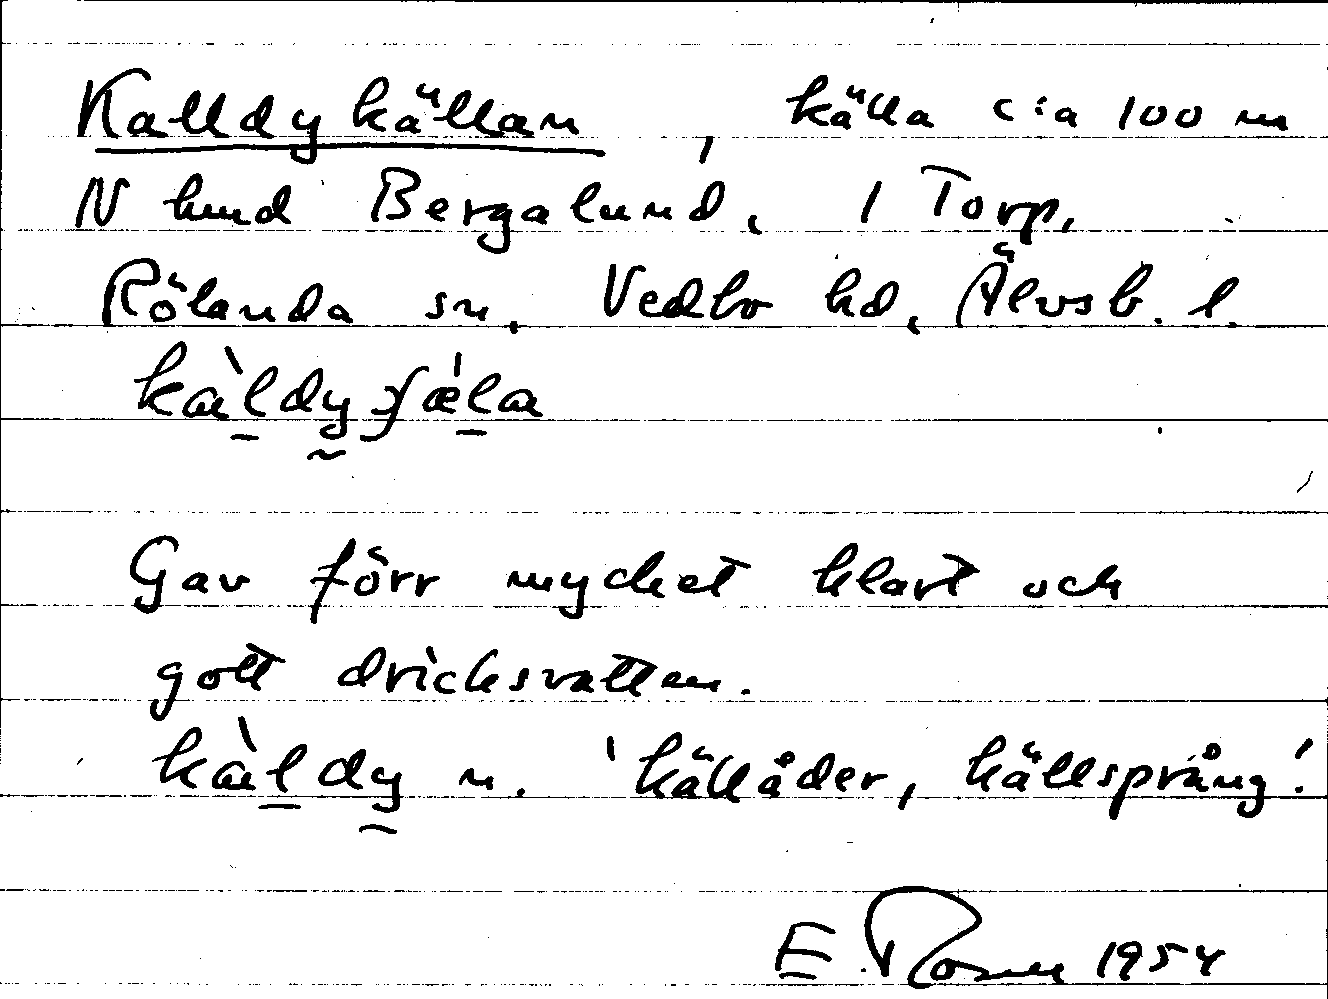 Kalldykällan, källa c:a 100 m
N hmd Bergalund, 1 Torp,
Rölanda sn, Vedbo hd, Älvsb. l.
Gav förr mycket klart och
gott dricksvatten.
n. 'källåder, källsprång'.
E. 1954